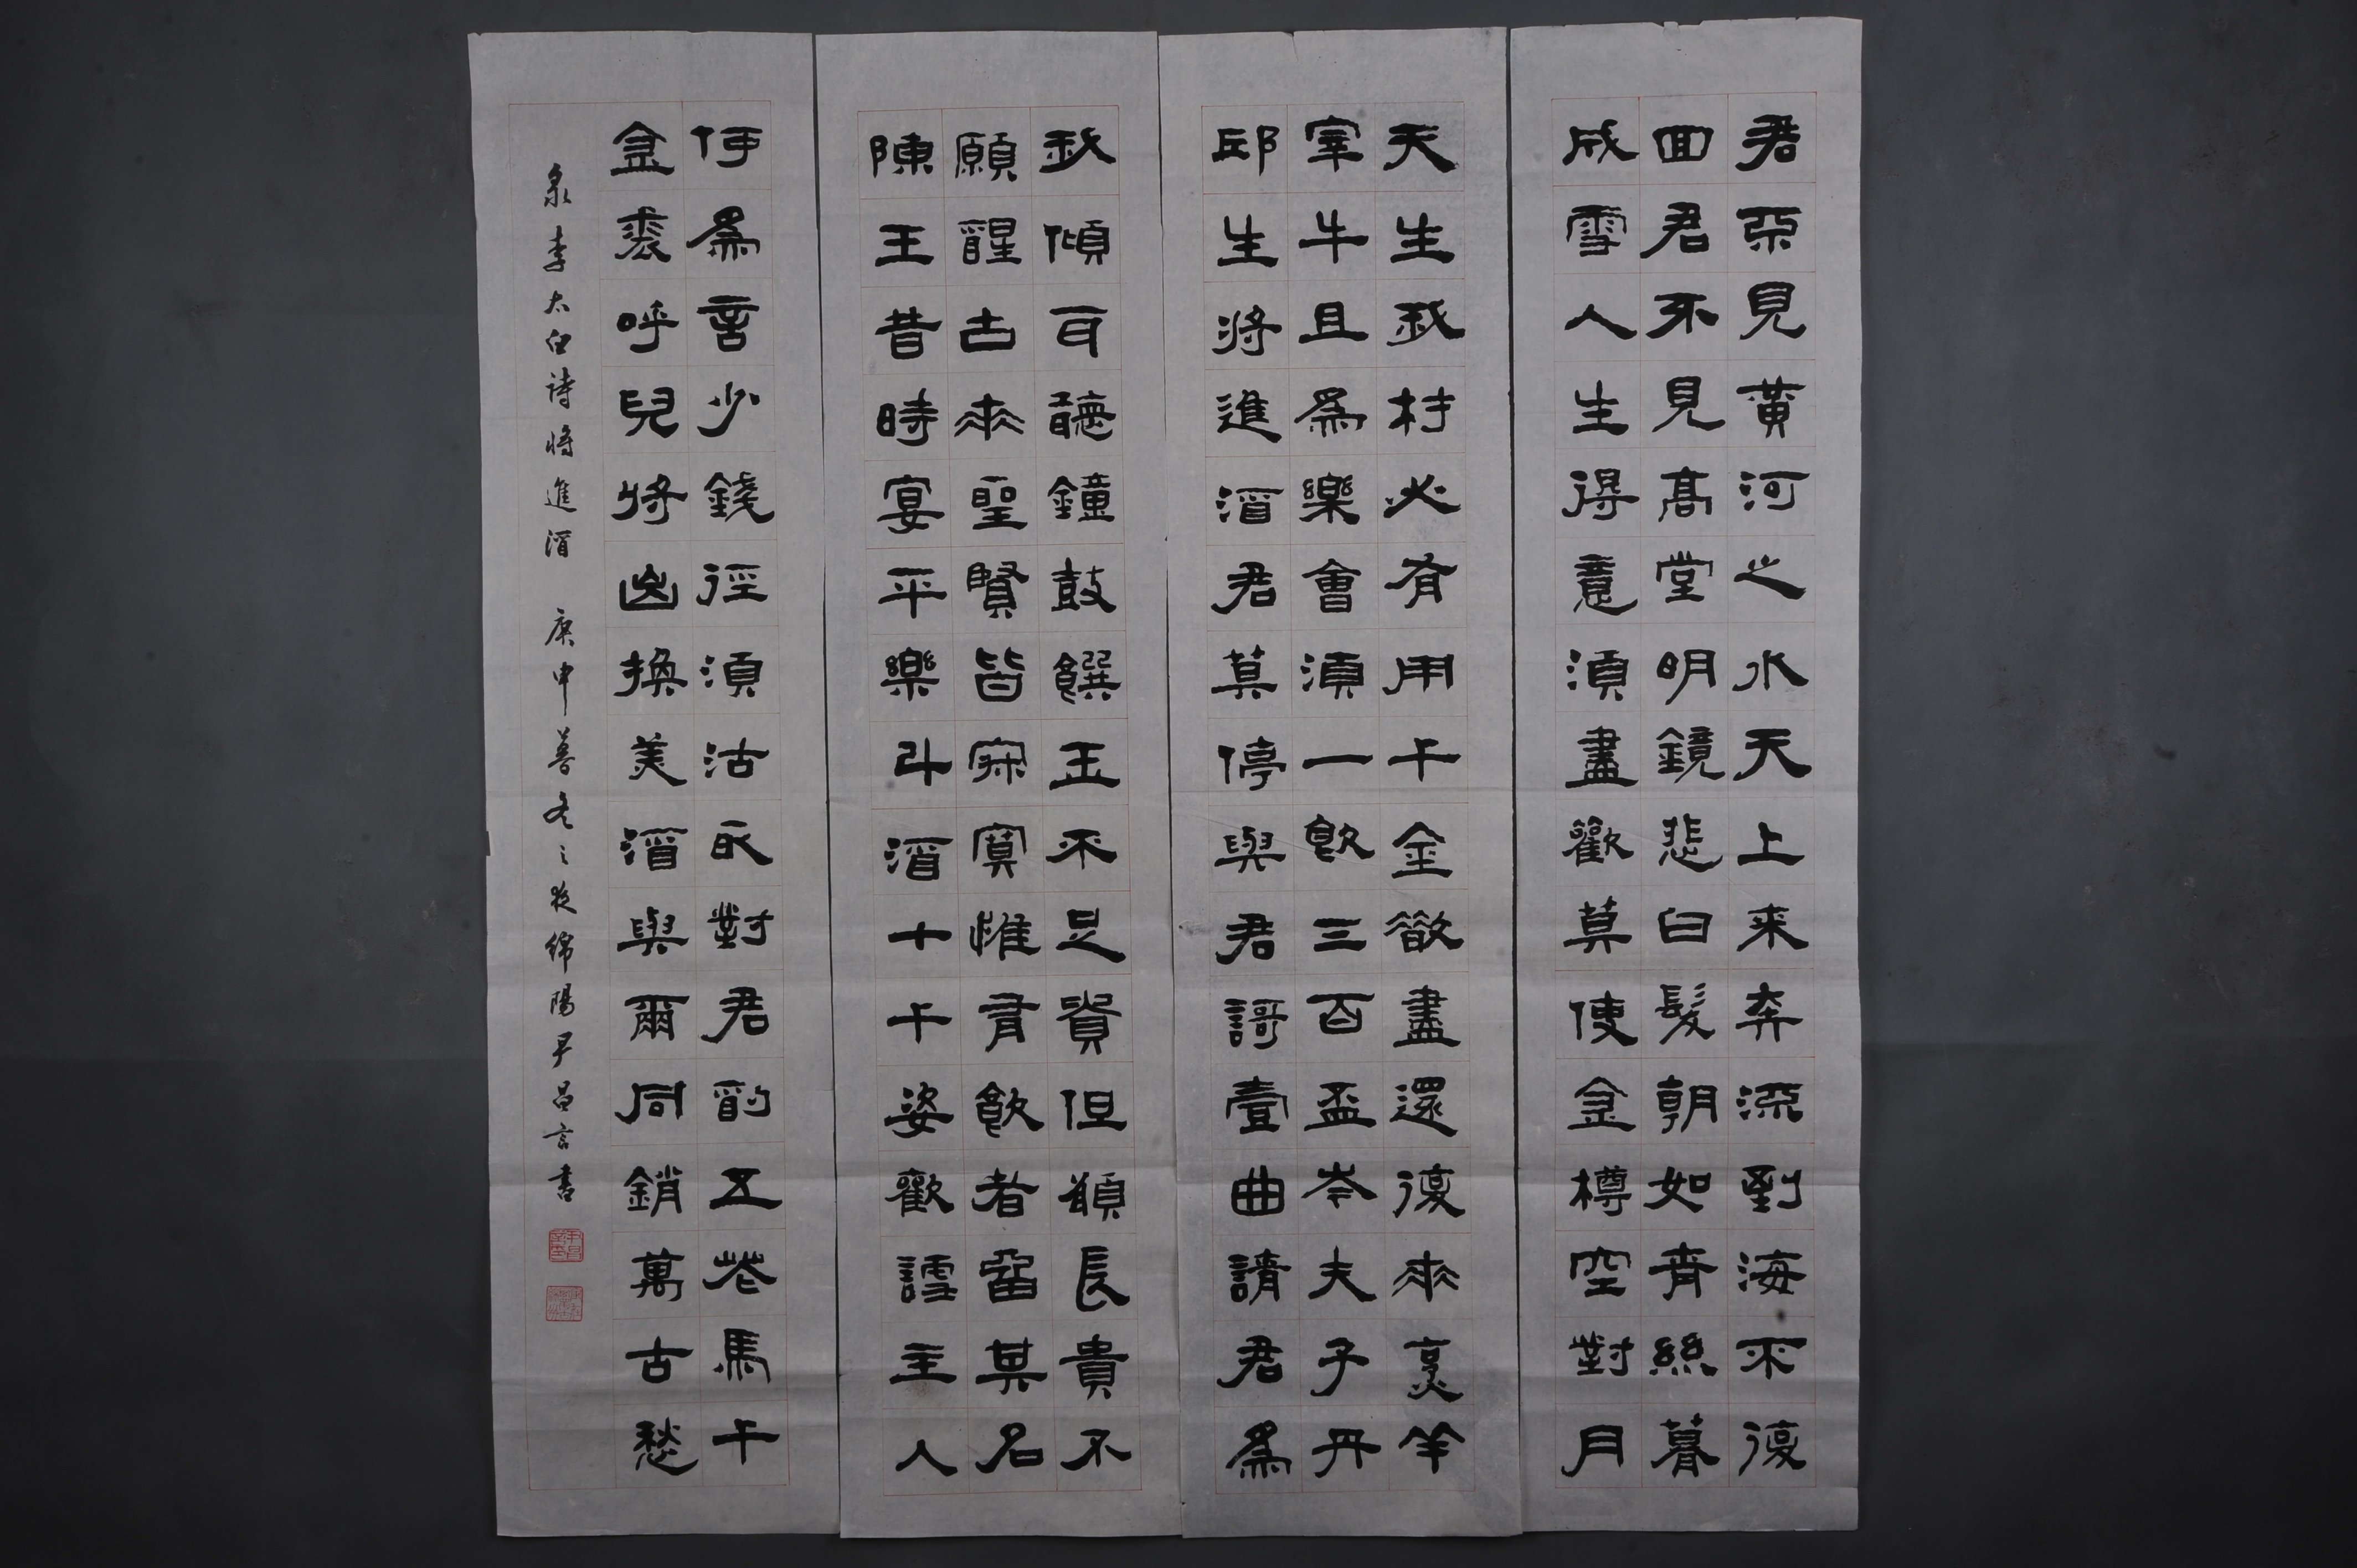 君不見黃河之水天上来奔流到海不復
回君不見高堂明鏡悲白髮朝如青絲暮
成雪人生得意須盡歡莫使金樽空對月
天生我材必有用千金散盡還復來烹羊
宰牛且爲樂會須一飲三百盃岑夫子丹
邱生將進酒君莫停與君謌壹曲請君爲
我傾耳聽鐘鼓饌玉不足貴但願長貴不
願醒古來聖賢皆寂寞惟有飲者留其名
陳王昔時宴平樂斗酒十千姿歡謔主人
何爲言少錢徑須沽取對君酌五花馬千
金裘呼兒將出換美酒與爾同銷萬古愁
录李太白詩將進酒 庚申暮冬之夜綿陽尹昌言書